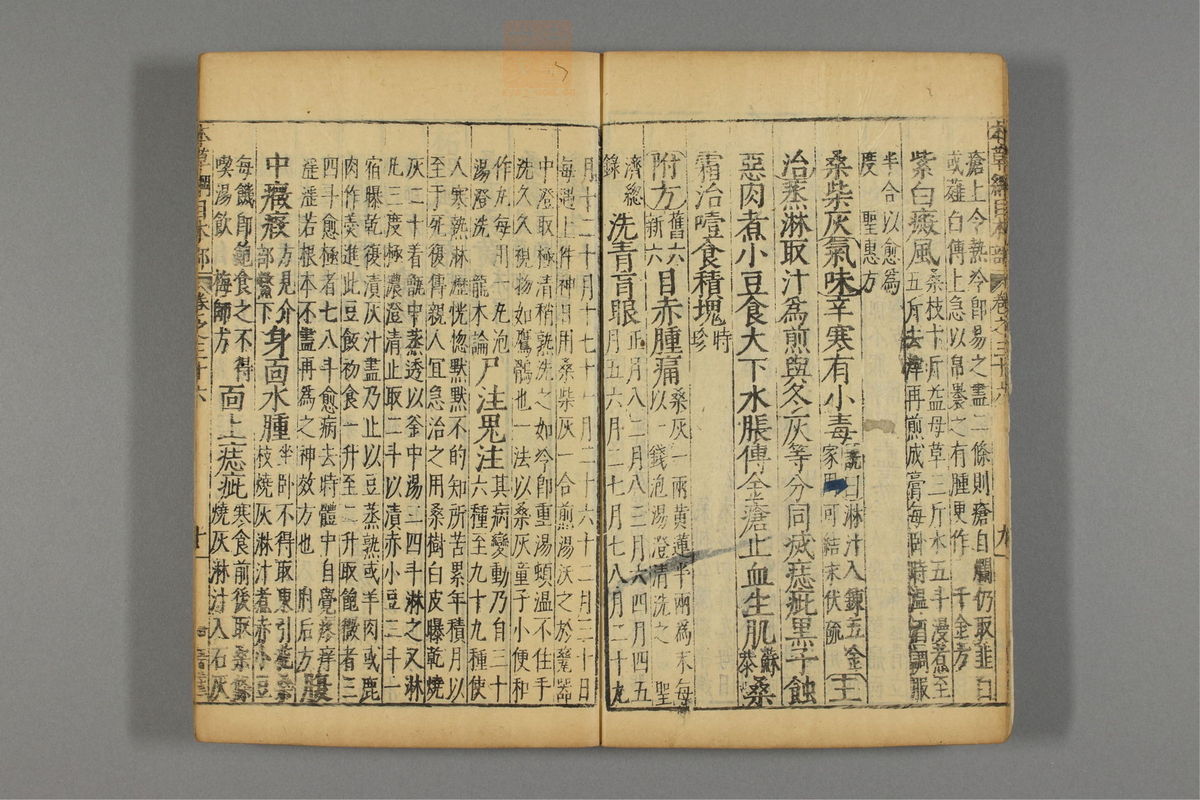 本草綱目木部 卷之三十六 九
瘡上令熱冷即易之盡二條則瘡自爛仍取韭白
或薤白傅上急以帛裹之有腫更作 千金方
紫白癜風
桑枝十斤益母草三斤水五斗漫煮至
五斤去滓再煎成膏每卧時溫酒調服
半合以愈爲
度 聖惠方
桑柴灰氣味辛寒有小毒
詵曰淋汁入鍊五金
家用可結汞伏硫
主
治蒸淋取汁爲煎與冬灰等分同滅痣疵黑子蝕
惡肉煮小豆食大下水脹傅金瘡止血生肌
蘇
恭
桑
霜治噎食積塊
時
珍
附方
舊六
新六
目赤腫痛
桑灰一兩黃連半兩爲末每
以一錢泡湯澄清洗之 聖
濟總
錄
洗青盲眼
正月八二月八三月六四月四五
月五六月二七月七八月二十九
月十二十月十七十一月二十六十二月三十日
每遇上件神日用桑柴灰一合煎湯沃之於甆器
中澄取極清稍熱洗之如冷即重湯頓溫不住手
洗久久視物如鷹鶻也一法以桑灰童子小便和
作丸每用一丸泡
湯澄洗 龍木論
尸注鬼注
其病變動乃自三十
六種至九十九種使
人寒熱淋瀝恍惚默默不的知所苦累年積月以
至于死復傳親人宜急治之用桑樹白皮曝乾燒
灰二斗着甑中蒸透以釜中湯三四斗淋之又淋
凡三度極濃澄清止取二斗以漬赤小豆三斗一
宿曝乾復漬灰汁盡乃止以豆蒸熟或羊肉或鹿
肉作羹進此豆飯初食一升至二升取飽微者三
四斗愈極者七八斗愈病去時體中自覺疼癢
淫淫若根本不盡再爲之神效方也 肘后方
腹
中癥瘕
方見介
部鱉下
身面水腫
坐卧不得取東引花桑
枝燒灰淋汁煮赤小豆
每饑即飽食之不得
喫湯飲 梅師方
面上痣疵
寒食前後取桑條
燒灰淋汁入石灰
本草綱目木部 卷之三十六 十